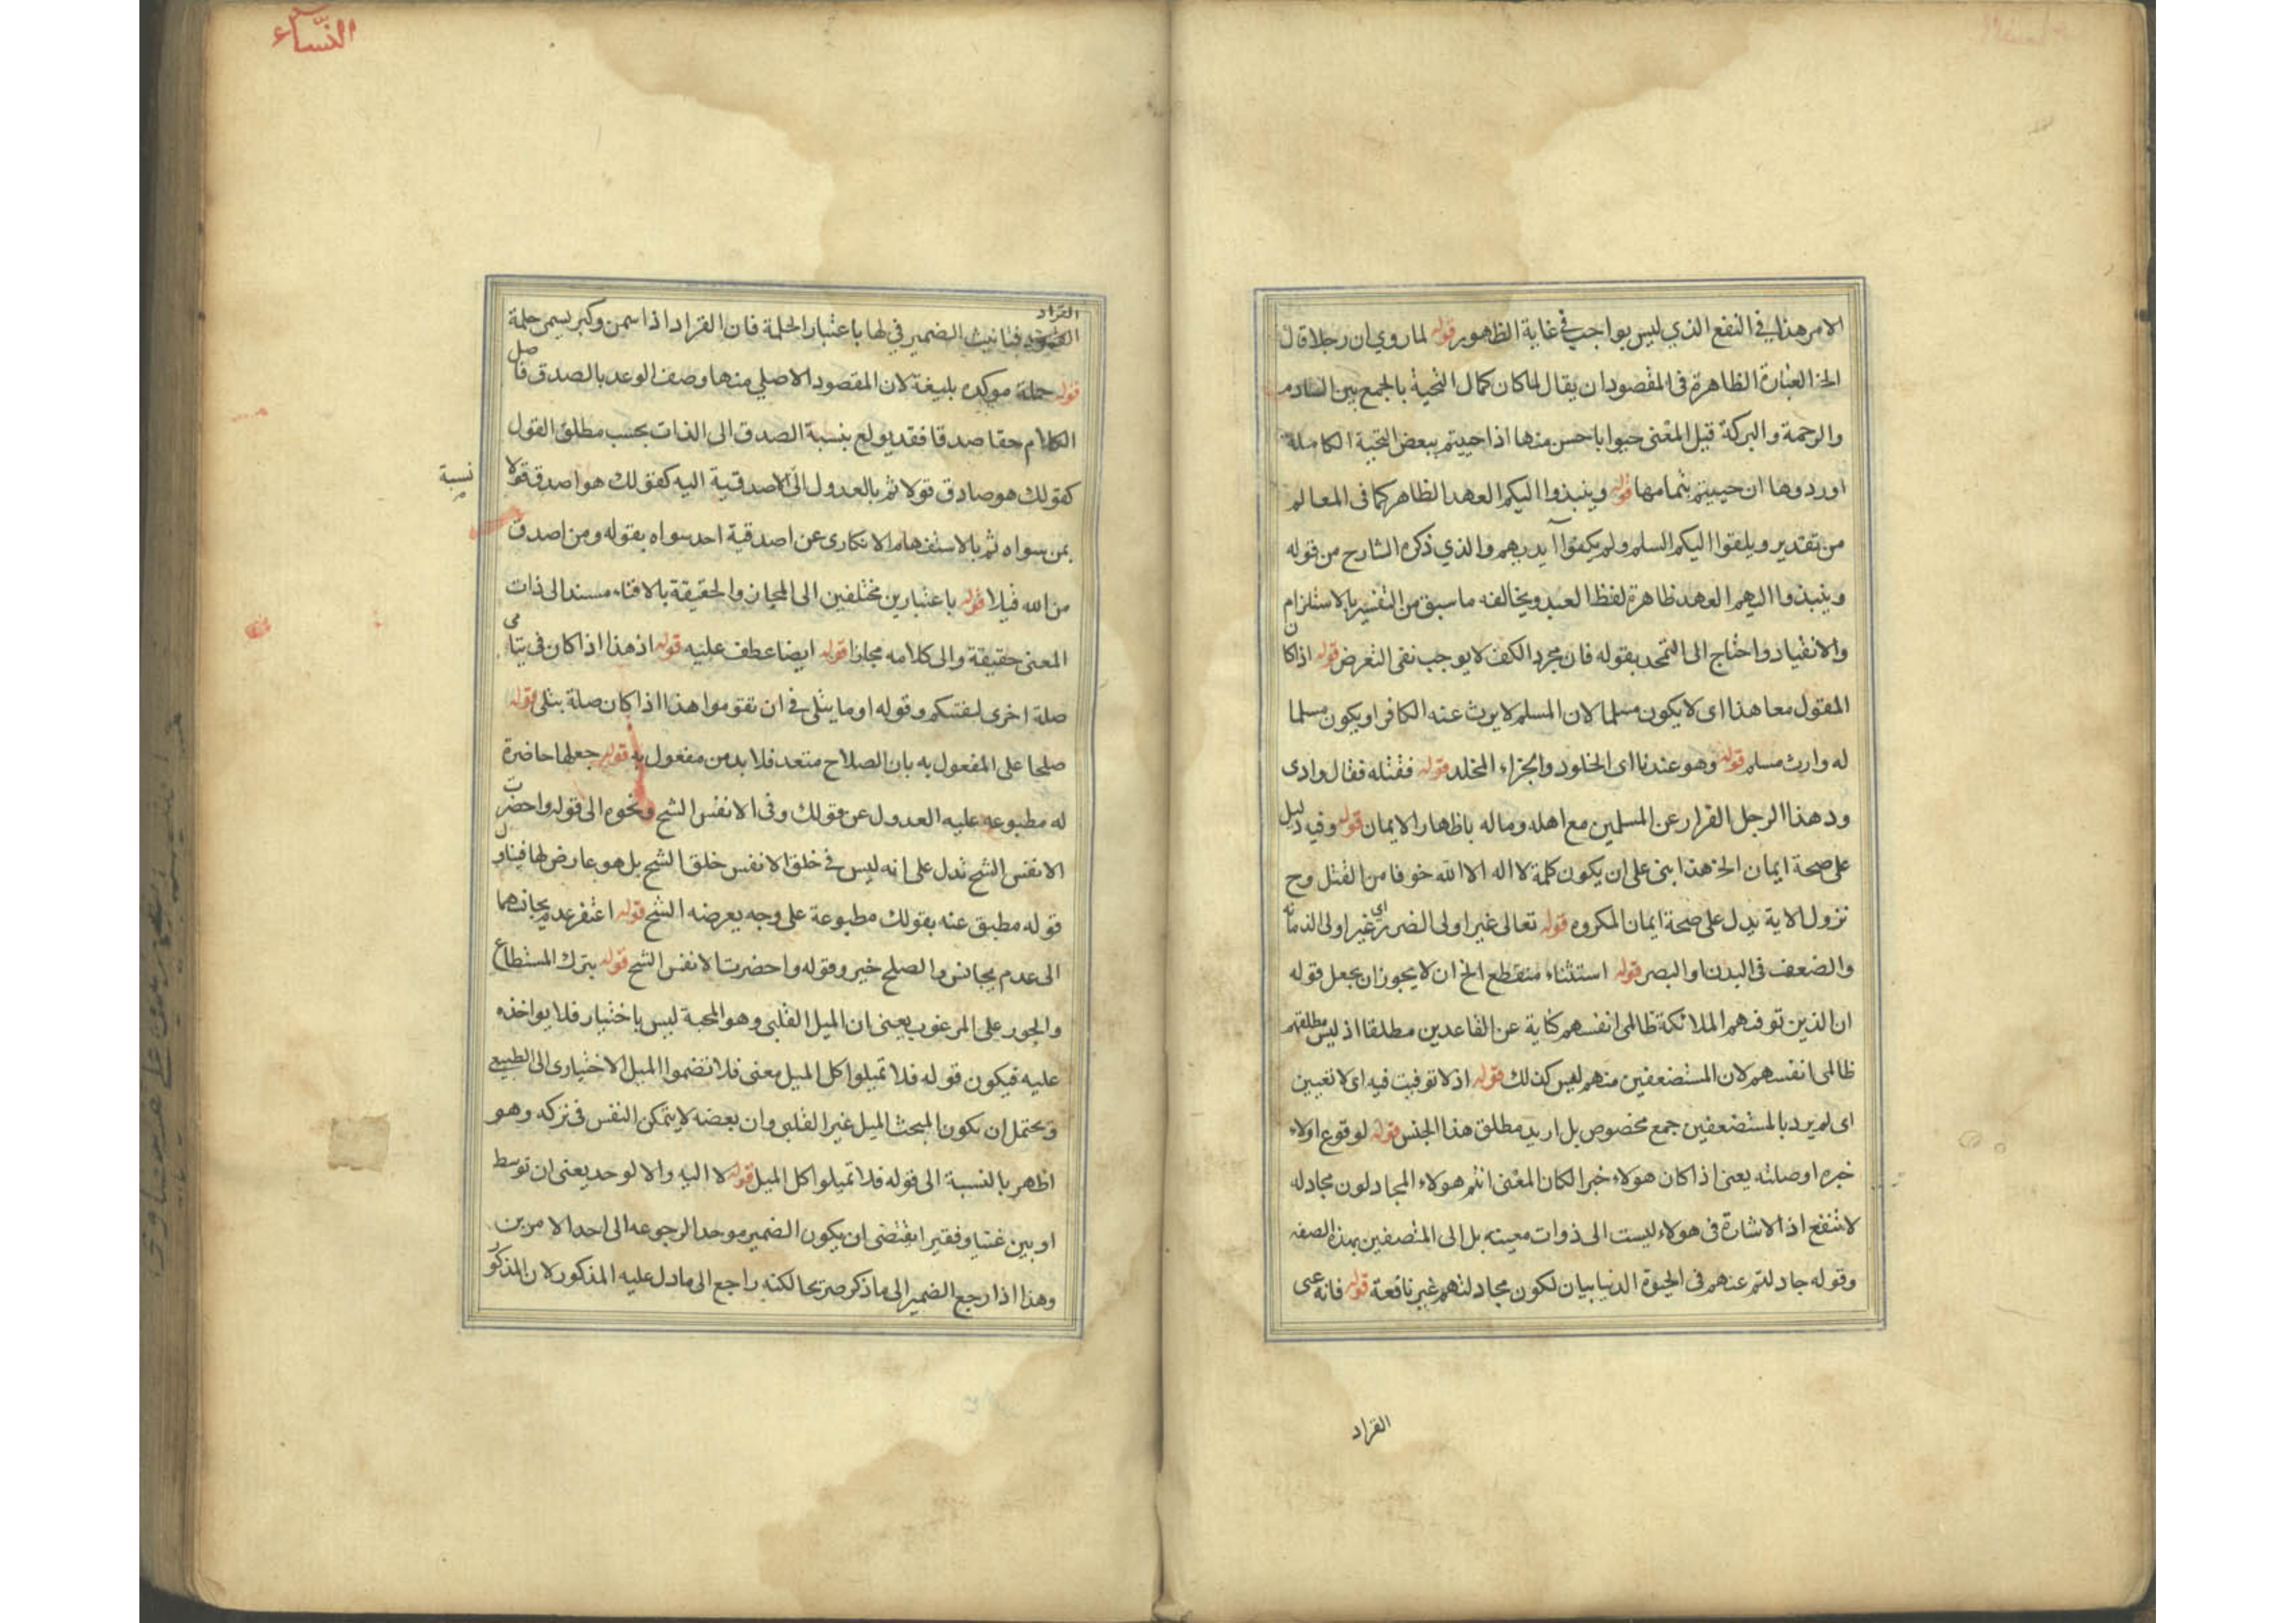 الامر هذا في النفع الذي ليس بواجب في غاية الظهور قوله لما روي ان رجلا قال
الخ العبارة الظاهرة فى المقصود ان يقال لما كان كمال التحية بالجمع بين السلام
والرحمة والبركة قيل المعنى حيوا باحسن منها اذا حييتم ببعض التحية الكاملة
اوردوها ان حييتم بتمامها قوله وينبذوا اليكم العهد الظاهر كما فى المعالم
من تقدير ويلقوا اليكم السلم ولم يكفوا ايديهم والذي ذكره الشارح من قوله
وينبذوا اليهم العهد ظاهرة لفظا لعبد ويخالفه ما سبق من التفسير بالاستلزام
والانقياد واحتاج الى التمحد بقوله فان مجرد الكف لا يوجب نفى التعرض قوله اذا كان
المقتول معاهذا اى لا يكون مسلما لان المسلم لا يرث عنه الكافر او يكون مسلما
له وارث مسلم قوله وهو عندنا اى الخلود والجزاء المخلد قوله فقتله فقال وادى
ود هذا الرجل القرار عن المسلمين مع اهله وماله باظهار الايمان قوله وفيه دليل
على صحة ايمان الخ هذا ابنى على ان يكون كلمة لا اله الا الله خوفا من القتل وح
نزول الاية يدل على صحة ايمان المكروه قوله تعالى غير اولى الضرر اى غير اولى الذمانه
والضعف فى البدن او البصر قوله استثناء منقطع الخ ان لا يجوز ان يجعل قوله
ان الذين توفهم الملائكة ظالمى انفسهم كناية عن القاعدين مطلقا اذ ليس مطلقهم
ظالمى انفسهم لان المستضعفين منهم ليس كذلك قوله اذ لا توقيت فيه اى لا تعيين
اى لم يرد بالمستضعفين جمع مخصوص بل اريد مطلق هذا الجنس قوله لوقوع اولاء
خبره او صلته يعنى اذا كان هولاء خبرا لكان المعنى انتم هولاء المجادلون مجادله
لا تنفع اذ الاشارة فى هولاء ليست الى ذوات معينه بل الى المتصفين بهذه الصفه
وقوله جادلتم عنهم فى الحيوة الدنيا بيان لكون مجادلتهم غير نافعة قوله فانه عنى
القراد
النساء
القراد
فتانيث الضمير في لها باعتبار الحلمة فان القراد اذا سمن وكبر يسمى حلمة
قوله جملة موكده بليغة لان المقصود الاصلي منها وصف الوعد بالصدق فاصل
الكلام حقا صدقا فقد بولع بنسبة الصدق الى الذات بحسب مطلق القول
كقولك هو صادق قولا ثم بالعدول الى الاصدقية اليه كقولك هو اصدق قولا
نسبة
بمن سواه ثم بالاستفهام الانكارى عن اصدقية احد سواه بقوله ومن اصدق
من الله قيلا قوله باعتبارين مختلفين الى المجاز والحقيقة بالافتاء مسند الى ذات
المعنى حقيقة والى كلامه مجازا قوله ايضا عطف عليه قوله اذ هذا اذا كان فى يتامى
صلة اخرى ليفتيكم وقوله او ما يتلى فى ان تقوموا هذا اذا كان صلة يتلى قوله
صلحا على المفعول به بان الصلاح متعد فلا بد من مفعول به قوله جعلها حاضرة
له مطبوعه عليه العدول عن قولك وفى الانفس الشح ونحوه الى قوله واحضرت
الانفس الشح تدل على انه ليس فى خلق الانفس خلق الشح بل هو عارض لها فيناول
قوله مطبق عنه بقولك مطبوعة على وجه يعرضه الشح قوله اغتفر عدم تجانسهما
الى عدم تجانس والصلح خير وقوله واحضرت الانفس الشح قوله بترك المستطاع
والجور على المرغوب يعنى ان الميل القلبى وهو المحبة ليس باختيار فلا يواخذه
عليه فيكون قوله فلا تميلوا كل الميل معنى فلا تضموا الميل الاختيارى الى الطبيعى
ويحتمل ان يكون المبحث الميل غير القلبى وان بعضه لا يتمكن النفس فى تركه وهو
اظهر بالنسبة الى قوله فلا تميلوا كل الميل قوله لا اليه والا لوحد يعنى ان توسط
او بين غنيا وفقيرا يقتضى ان يكون الضمير موحدا لرجوعه الى احد الامرين
وهذا اذا رجع الضمير الى ما ذكر صريحا لكنه راجع الى ما دل عليه المذكور لان المذكور